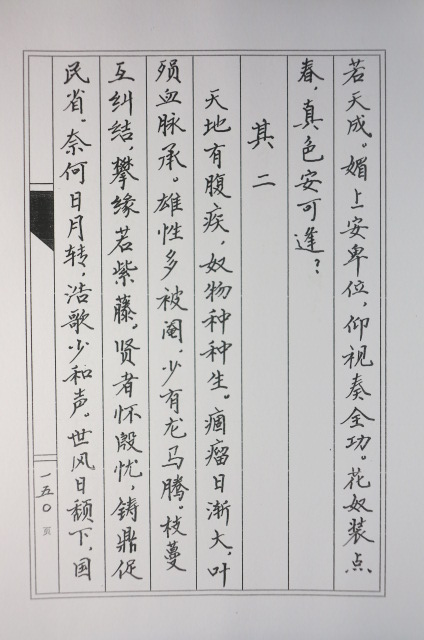 若天成。媚上安卑位，仰视奏全功。花奴装点
春，真色安可逢？
其二
天地有腹疾，奴物种种生。痼瘤日渐大，叶
殒血脉承。雄性多被阉，少有龙马腾。枝蔓
互纠结，攀缘若紫藤。贤者怀殷忧，铸鼎促
民省。奈何日月转，浩歌少和声。世风日颓下，国
一五〇页